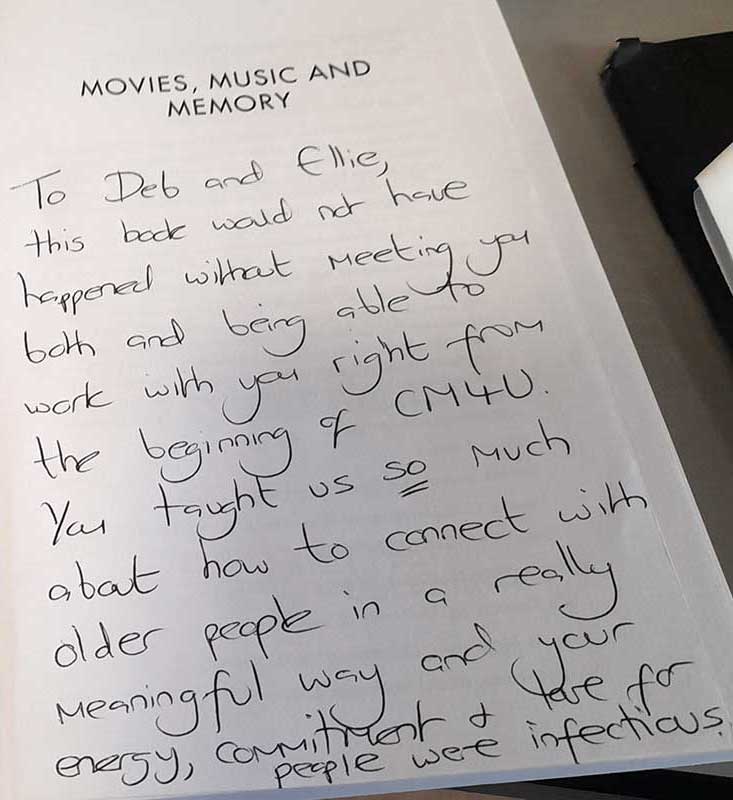 MOVIES, MUSIC AND
MEMORY
To Deb and Ellie,
this book would not have
happened without meeting you
both and being able to
work with you right from
the beginning of CM4U.
You taught us so much
about how to connect with
older people in a really
meaningful way and your
energy, commitment & love for
people were infectious.